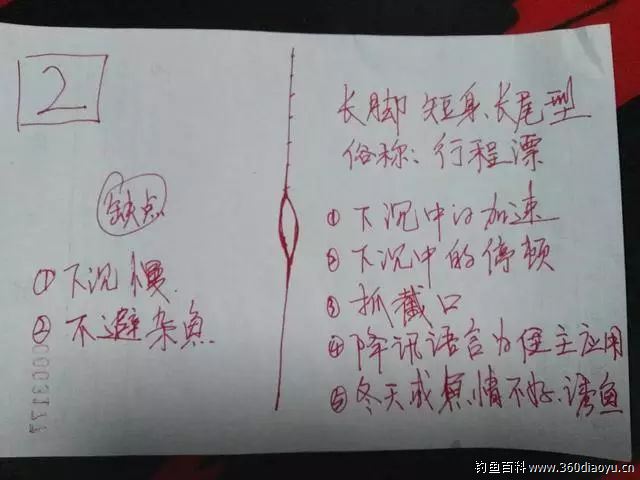 2
缺点
①下沉慢
②不避杂鱼
00003177
长脚 短身 长尾型
俗称:行程漂
①下沉中的加速
②下沉中的停顿
③抓截口
④降讯语言为便主应用
⑤冬天或鱼情不好.诱鱼
钓鱼百科www.360diaoyu.cn